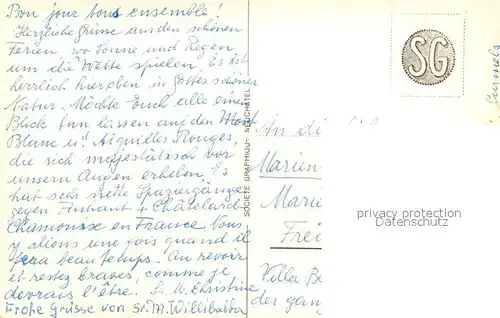 Bon jour tous ensemble!
Herzliche Grüsse aus den schönen
Ferien, wo Sonne und Regen
um die Wette spielen. Es ist
herrlich hier oben, in Gottes schöner
Natur. Möchte Euch alle einen
Blick tun lassen auf den Mont
Blanc u. Aiguilles Rouges,
die sich majestätisch vor
unseren Augen erheben. Es
hat sehr nette Spaziergänge
gegen Châtelard
Chamounix en France. Nous
y allions une fois quand il
fera beau temps. Au revoir
et restez braves, comme je
devrais l'être. Sr. M. Christine
Frohe Grüsse von Sr. M. Willibalda
SOCIÉTÉ GRAPHIQUE NEUCHÂTEL
SG
An die
Marien
Marie
Frei
Villa Be
der gan
privacy protection